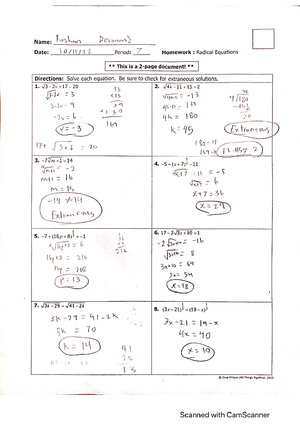 Name:
Date: 10/11/22 Period: 7 Homework: Radical Equations
** This is a 2-page document! **
Directions: Solve each equation. Be sure to check for extraneous solutions.
1. √3-2v +17 = 20
√3-2v = 3
3-2v = 9
-2v = 6
v = -3
17+ √3+6 = 20
2. √4k-11 +15 = 2
√4k-11 = -13
4k-11 = 169
4k = 180
k = 45
Extraneous
180-11
169
3. -7√m+1 = 14
√m+1 = -2
m+1 = 4
-14 ≠ 14
Extraneous
-5 = (x+7)^½ -11
√x+7 -11 = -5
√x+7 = 6
x+7 = 36
x = 29
5. -7 + (16p + 8)^⅓ = -1
216
p = 13
6. 17 - 2√3x+10 = 1
-2√3x+10 = -16
√3x+10 = 8
3x+10 = 64
3x = 54
x = 18
7. √3k - 29 = √41 - 2k
3k - 29 = 41 - 2k
5k = 70
k = 14
8. (3x - 21)^½ = (19 - x)^½
3x - 21 = 19 - x
4x = 40
x = 10
Scanned with CamScanner